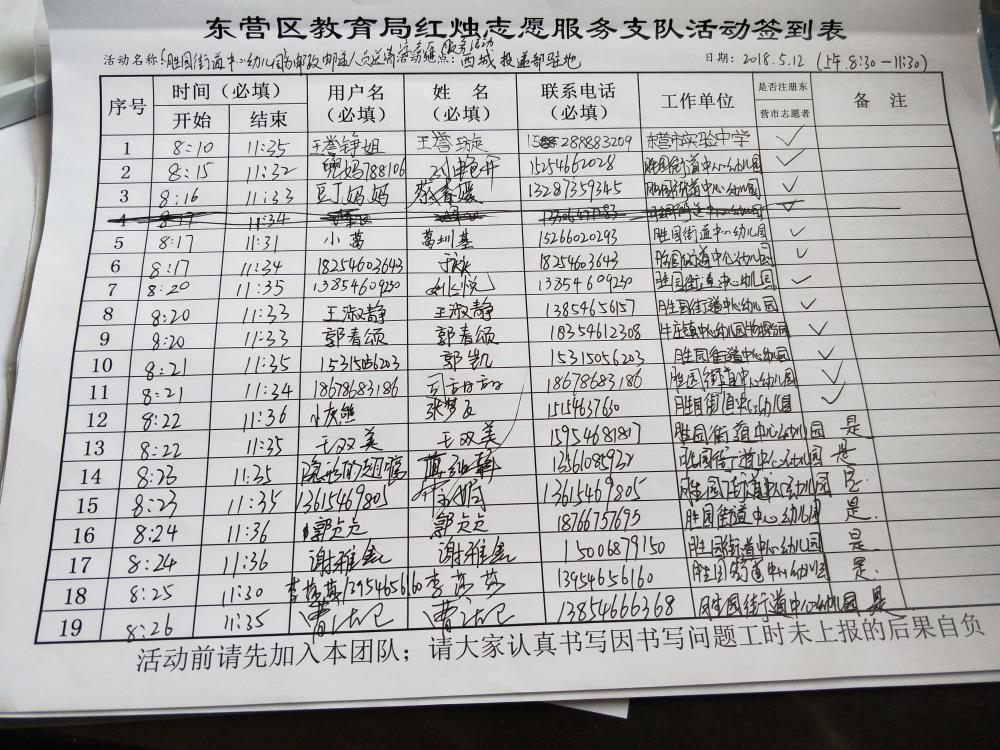 东营区教育局红烛志愿服务支队活动签到表
活动名称：胜园街道中心幼儿园为邮政邮递人员送清 服务活动 活动地点：西城投递部驻地 日期：2018.5.12（上午.8:30—11:30）
序号 时间（必填） 用户名（必填） 姓名（必填） 联系电话（必填） 工作单位 是否注册东营市志愿者 备注
开始 结束
1 8:10 11:35 王誉铮姐 王誉璇 288883209 东营市实验中学 ✓
2 8:15 11:32 兜妈788106 15254662028 胜园街道中心幼儿园 ✓
3 8:16 11:33 豆丁妈妈 蔡春媛 13287359345 胜园街道中心幼儿园 ✓
4 8:17 11:34 ✓
5 8:17 11:31 小葛 葛圳基 15266020293 胜园街道中心幼儿园 ✓
6 8:17 11:34 18254603643 18254603643 胜园街道中心幼儿园 ✓
7 8:20 11:35 13854609250 13854609250 胜园街道中心幼儿园 ✓
8 8:20 11:33 王淑静 王淑静 13854656157 胜园街道中心幼儿园 ✓
9 8:20 11:33 郭春颂 郭春颂 18354612308 牛庄镇中心幼儿园 ✓
10 8:21 11:35 15315056203 郭凯 15315056203 胜园街道中心幼儿园 ✓
11 8:21 11:34 18678683186 18678683186 胜园街道中心幼儿园 ✓
12 8:22 11:36 小灰熊 张梦 1515463 胜园街道中心幼儿园 ✓
13 8:22 11:35 王双美 王双美 15954681807 胜园街道中心幼儿园 是
14 8:23 11:35 隐形的翅膀 胜园街道中心幼儿园 是
15 8:23 11:35 13615469805 13615469805 胜园街道中心幼儿园 是
16 8:24 11:36 郭贞贞 郭贞贞 18766757695 胜园街道中心幼儿园 是.
17 8:24 11:36 谢雅 谢雅 15006879150 胜园街道中心幼儿园 是.
18 8:25 11:30 13954656160 李 13954656160 胜园街道中心幼儿园 是.
19 8:26 11:35 曹 曹 13854666368 胜园街道中心幼儿园 是.
活动前请先加入本团队；请大家认真书写因书写问题工时未上报的后果自负